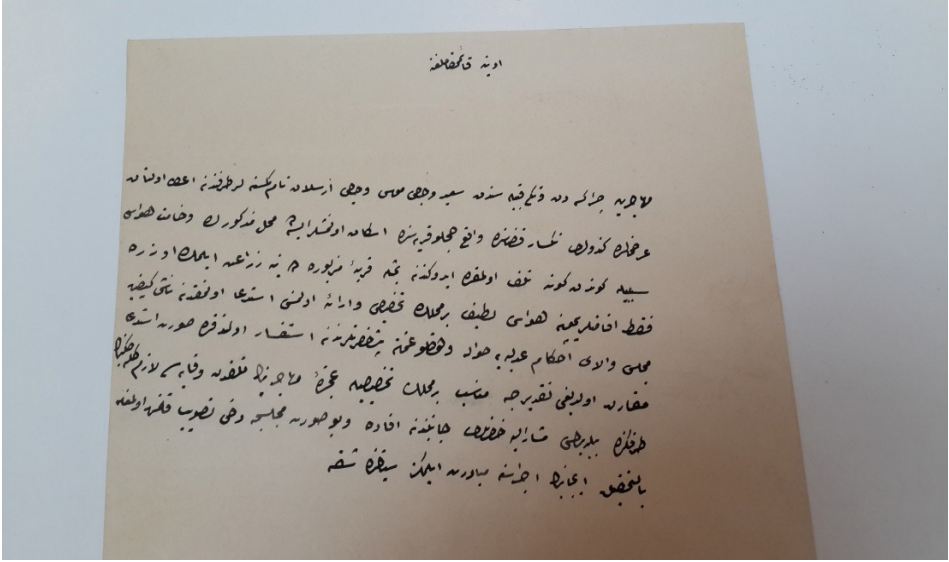 اورنه قائمقاملغنه
مهاجرين چراكسه دن سندن سعيد وجعى موسى وجعى ارسلان نام كسنه لر طرفندن اعطا اولنان
عرضحالده كندولرى قضاسنده واقع قريه سنده اسكان اولنمشلر ايسه ده محل مذكورك وخامت هواسى
سببيله كوندن كونه تلف اولمقده ايدوكندن قريهٔ مزبوره ده ينه زراعت ايلمك اوزره
فقط اقامتلريچون هواسى لطيف بر محلك تخصيص وارائه اولنمسى استدعا اولنمقدن ناشى كيفيت
مجلس والاى احكام عدليه يه حواله استفسار اولندقده صورت استدعا
مقارن اولديغى تقديرجه مناسب بر محلك تخصيصيله عجزهٔ مهاجرينك تلفدن وقايه سى لازم
طرفكزه بيلديرلمسى مشاراليه حضرتلرى جانبندن افاده وبو صورت مجلسجه دخى تصويب قلنمش اولمغله
بالتحقيق ايجابنك اجراسنه مبادرت ايلمكز سياقنده شقه